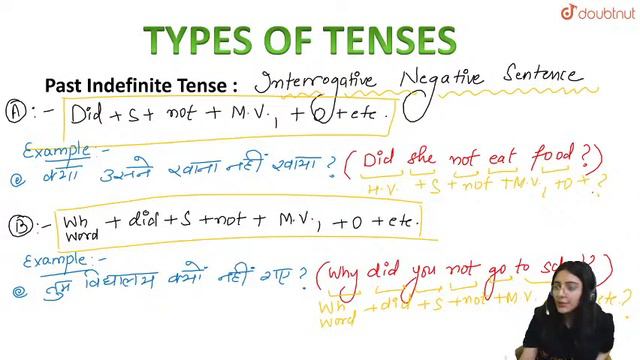 doubtnut
TYPES OF TENSES
Past Indefinite Tense : Interrogative Negative Sentence
(A) :- Did + S + not + M.V.₁ + O + etc.
Example :-
@ क्या उसने खाना नहीं खाया ? (Did she not eat food?)
H.V. + S + not + M.V.₁ + O + ?
(B) :- Wh word + did + S + not + M.V.₁ + O + etc.
Example :-
@ तुम विद्यालय क्यों नहीं गए ? (Why did you not go to ?)
Wh word + did + S + not + M.V. etc. ?